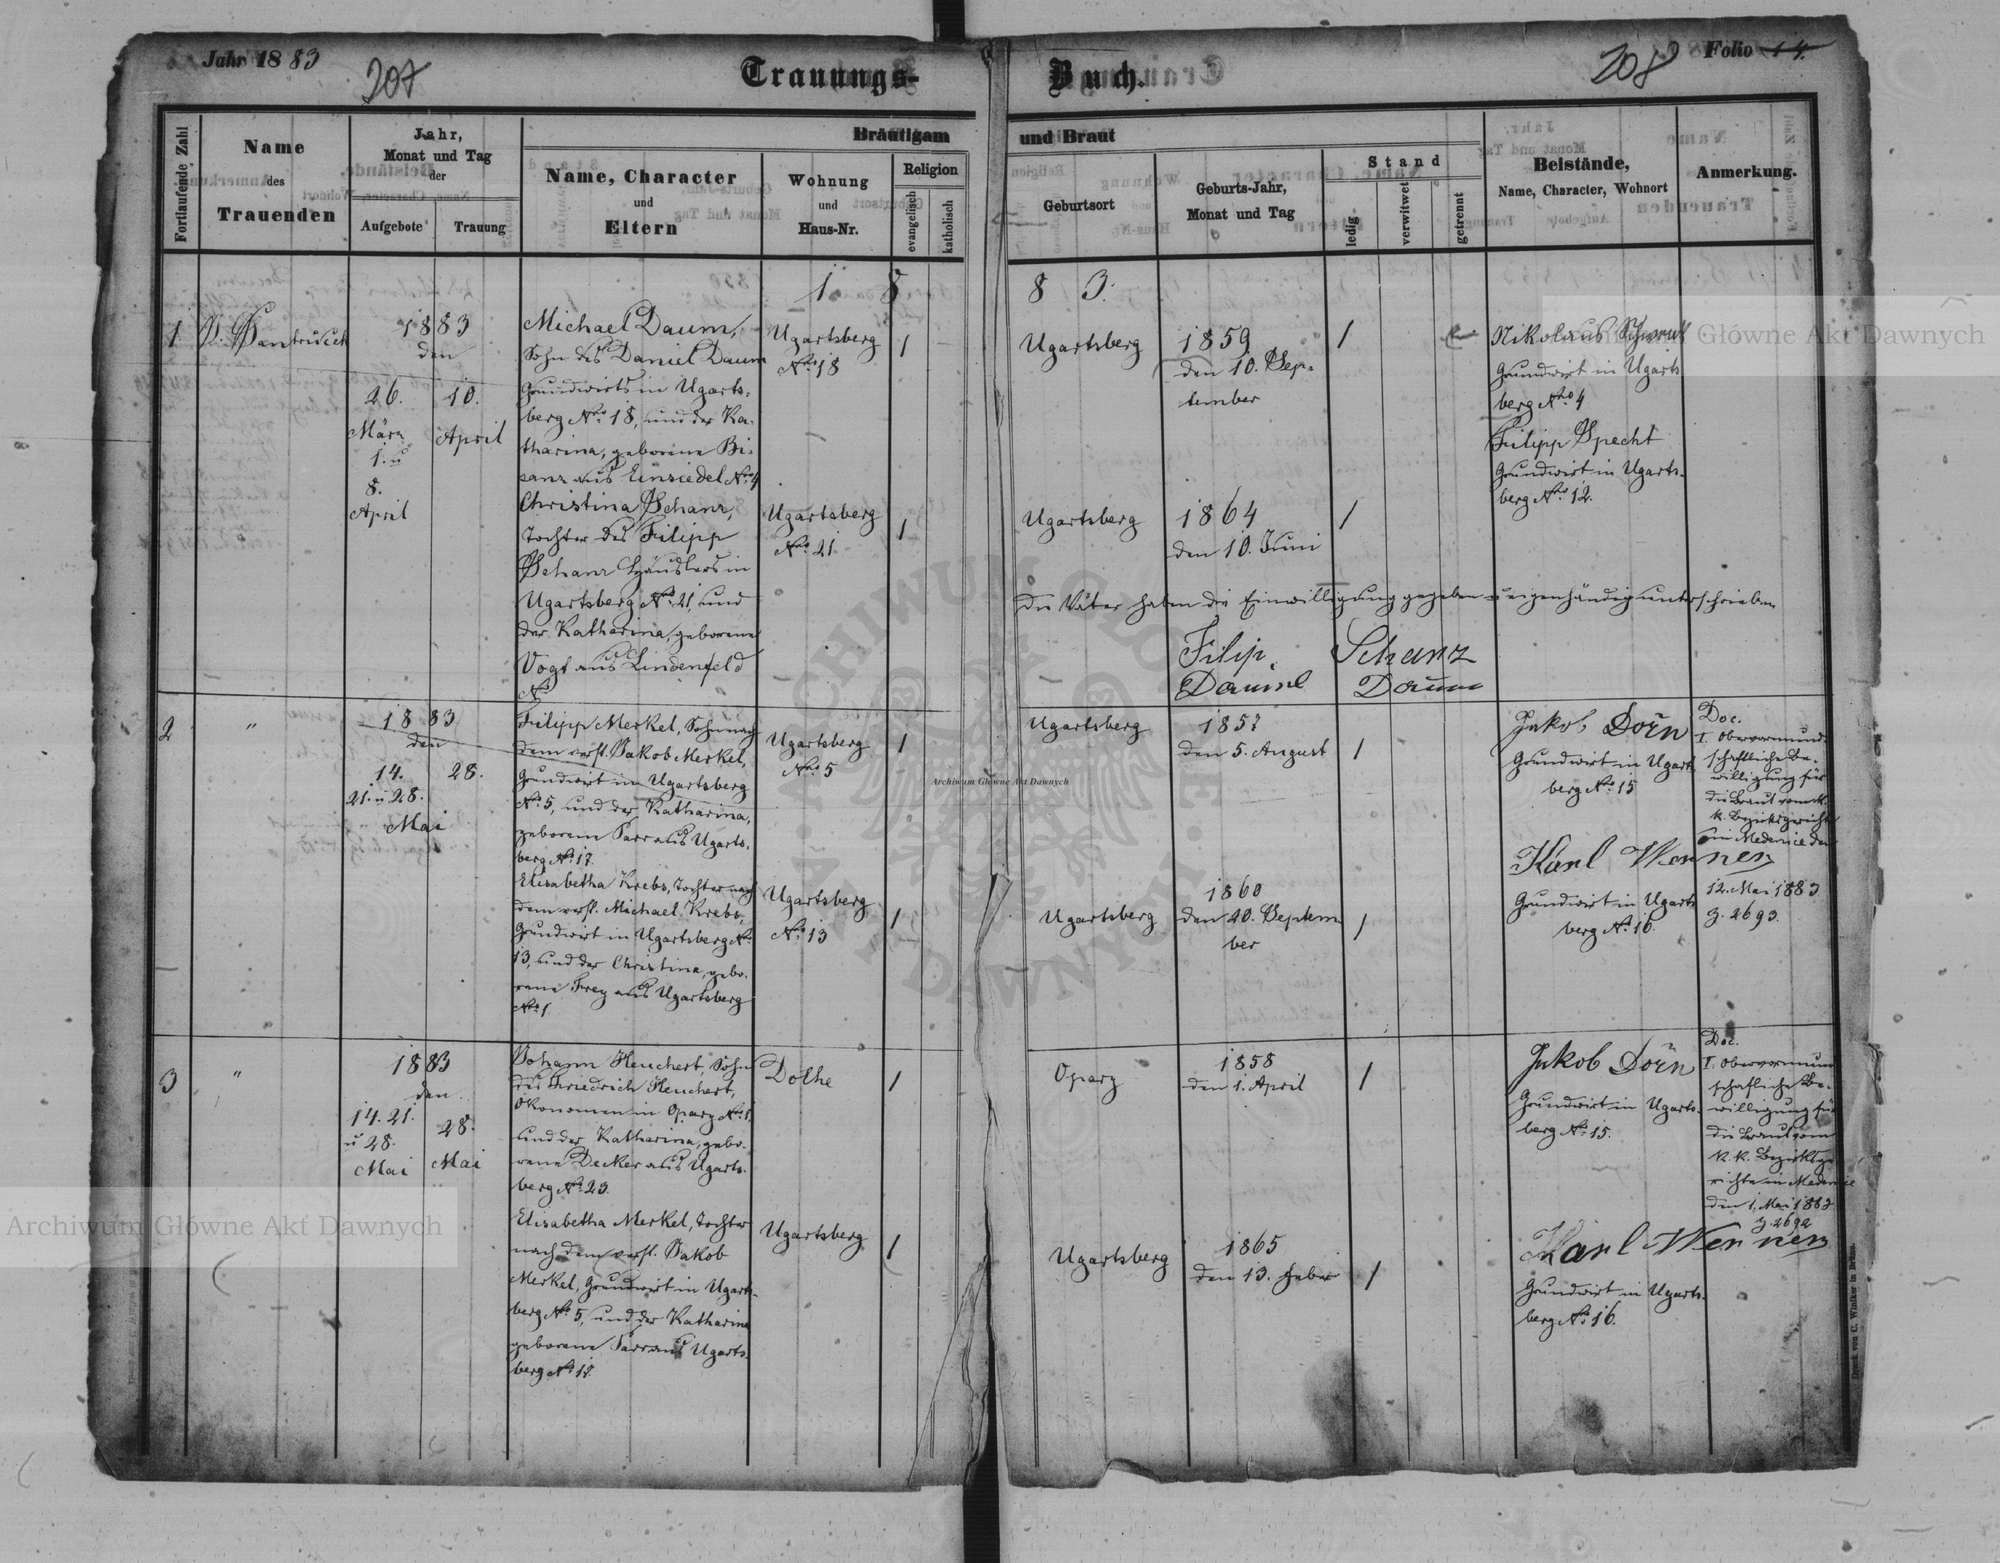 Jahr 1883
207
Trauungs-
Buch.
208
Folio 14.
Fortlaufende Zahl
Name
des
Trauenden
Jahr,
Monat und Tag
der
Aufgebote
Trauung
Bräutigam
und Braut
Name, Character
und
Eltern
Wohnung
und
Haus-Nr.
Religion
evangelisch
katholisch
Geburtsort
Geburts-Jahr,
Monat und Tag
Stand
ledig
verwitwet
getrennt
Beistände,
Name, Character, Wohnort
Anmerkung.
1 8 8 3.
1
1883
den
26.
März
1. u
8.
April
10.
April
Michael Daum,
Sohn des Daniel Daum
Grundwirts in Ugarts-
berg No 18, und der Ka-
tharina, geborene Bi-
sanz aus Einsiedel No 4
Ugartsberg
No 18
1
Ugartsberg
1859
den 10. Sep-
tember
1
Nikolaus
Grundwirt in Ugarts
berg No 4
Filipp Specht
Grundwirt in Ugarts-
berg No 12.
Christina Schanz,
Tochter des Filipp
Schanz Häuslers in
Ugartsberg No 21, und
der Katharina, geborene
Vogt aus Lindenfeld
No
Ugartsberg
No 21
1
Ugartsberg
1864
den 10. Juni
1
Die Väter haben die Einwilligung gegeben u eigenhändig unterschrieben
Filip Schanz
Daniel Daum
2
"
1883
den
14.
21. u 28.
Mai
28.
Filipp Merkel, Sohn nach
dem verst. Jakob Merkel,
Grundwirt in Ugartsberg
No 5, und der Katharina,
geborene Parr aus Ugarts-
berg No 17.
Ugartsberg
No 5
1
Ugartsberg
1857
den 5. August
1
Jakob Dörn
Grundwirt in Ugarts
berg No 15
Karl Wenner
Grundwirt in Ugarts
berg No 16.
Doc.
I. Obervormund-
schaftliche Be-
willigung für
die Braut vom k.
k. Bezirksgerichte
in Medenice den
12. Mai 1883
Z. 2693.
Elisabetha Krebs, Tochter nach
dem verst. Michael Krebs,
Grundwirt in Ugartsberg No
13, und der Christina, gebo-
rene Frey aus Ugartsberg
No 1
Ugartsberg
No 13
1
Ugartsberg
1860
den 20. Septem
ber
1
3
"
1883
den
14. 21.
u 28.
Mai
28.
Mai
Johann Heuchert, Sohn
des Friedrich Heuchert,
Ökonomen in Opary No 1,
und der Katharina, gebo-
rene Decker aus Ugarts-
berg No 23.
Dolhe
1
Opary
1858
den 1. April
1
Jakob Dörn
Grundwirt in Ugarts-
berg No 15.
Karl Wenner
Grundwirt in Ugarts-
berg No 16.
Doc.
I. Obervormund
schaftliche Be-
willigung für
die Braut vom
k. k. Bezirksge-
richte in Medenice
den 1. Mai 1883
Z. 2692
Elisabetha Merkel, Tochter
nach dem verst. Jakob
Merkel, Grundwirt in Ugarts-
berg No 5, und der Katharina
geborene Parr aus Ugarts-
berg No 17.
Ugartsberg
1
Ugartsberg
1865
den 13.
1
Druck von C. Winiker in Brünn.
Główne Akt Dawnych
Archiwum Główne Akt Dawnych
Archiwum Główne Akt Dawnych
ARCHIWUM GŁÓWNE AKT DAWNYCH